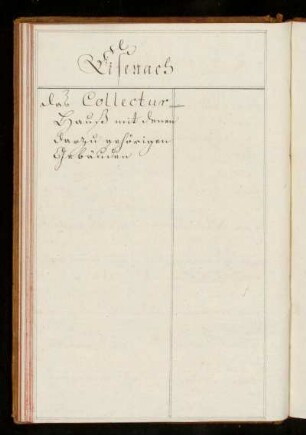 Zu
Eisenach
das Collectur-
Hauß mit denen
darzu gehörigen
Gebäuden